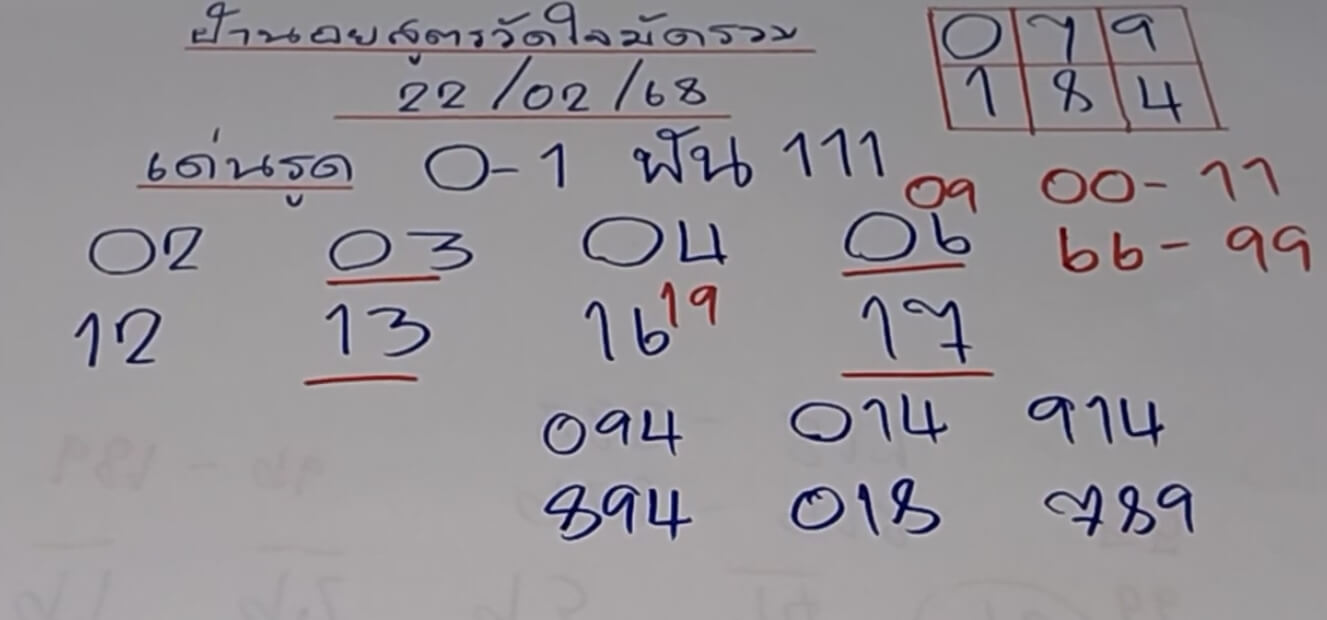 ฮานอยสูตรวัดใจมัดรวม
22/02/68
0 7 9
1 8 4
เด่นรูด 0-1 ฟัน 111
00-11
02 03 04 06 09
66-99
12 13 16 19 17
094 014 914
894 018 789